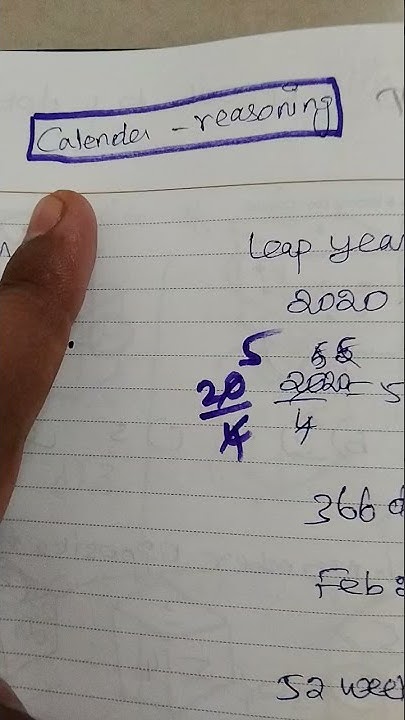 Calender - reasoning
leap year
2020
5 5 5
20 2020 - 5
4 4
366 d
Feb
52 week